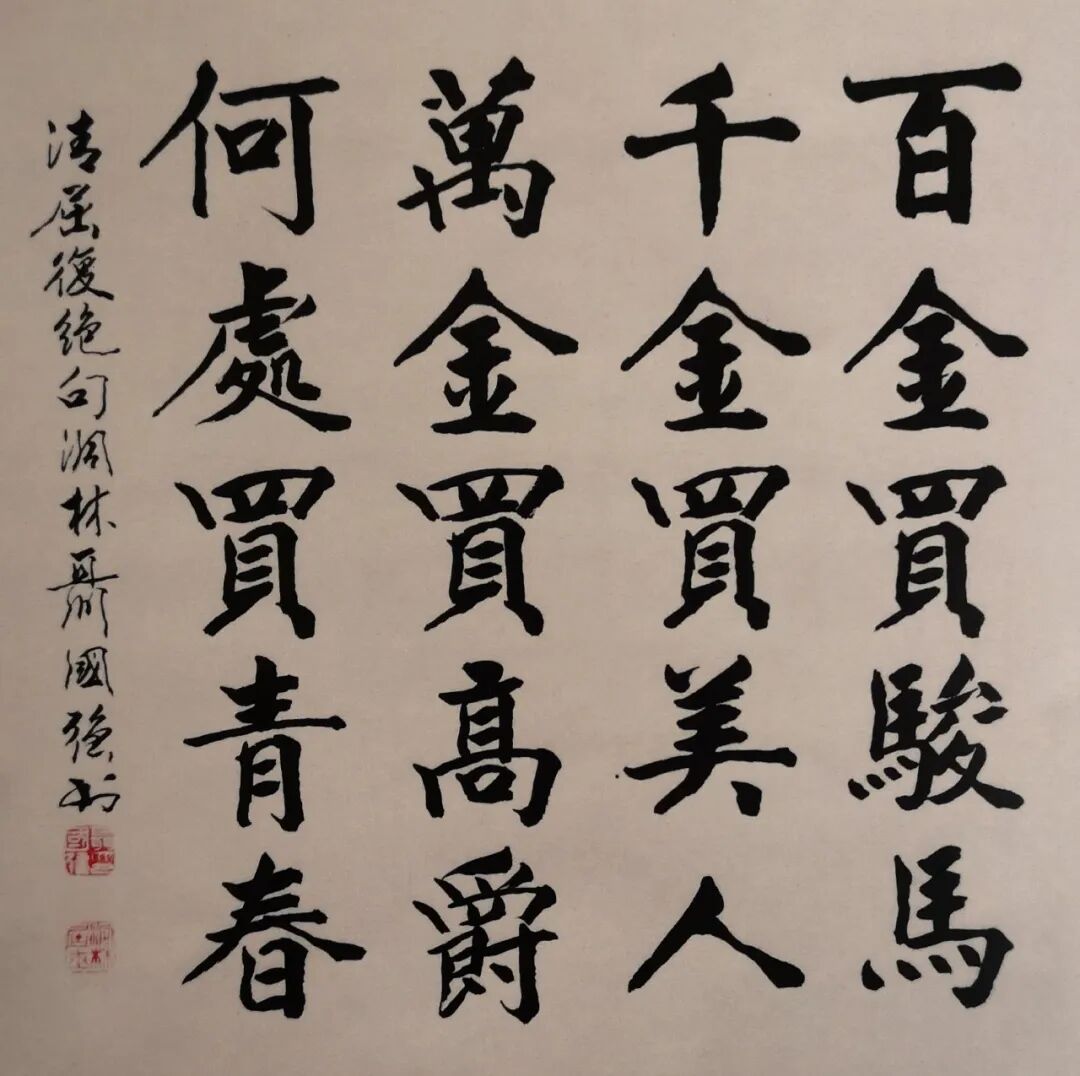 百金買駿馬
千金買美人
萬金買高爵
何處買青春
清屈復绝句澗林聶國强书